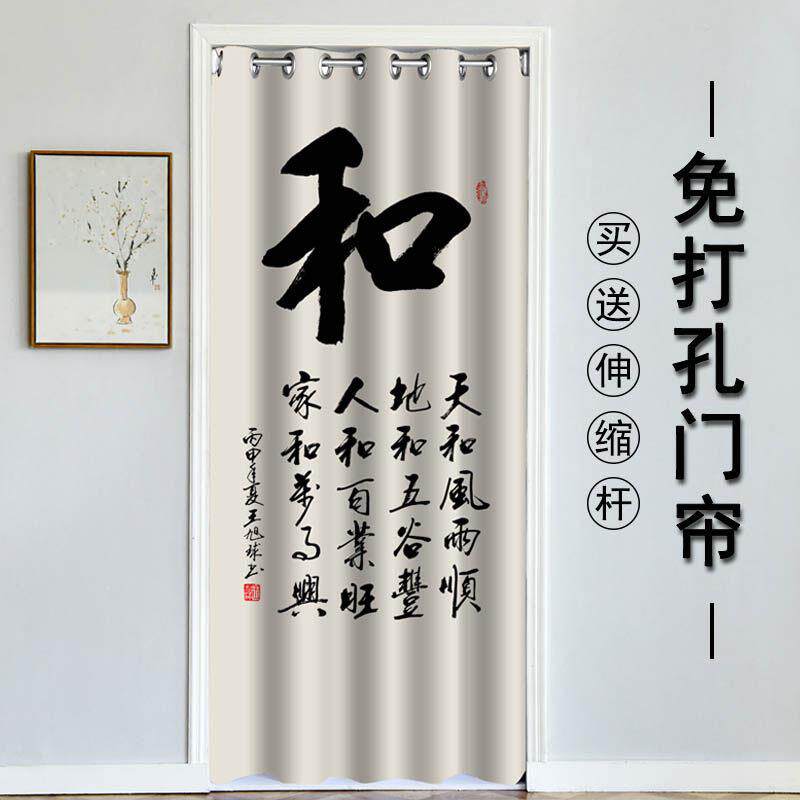 和
天和風雨順
地和五谷豐
人和百業旺
家和萬事興
丙申年夏王旭球书
免打孔门帘
买送伸缩杆